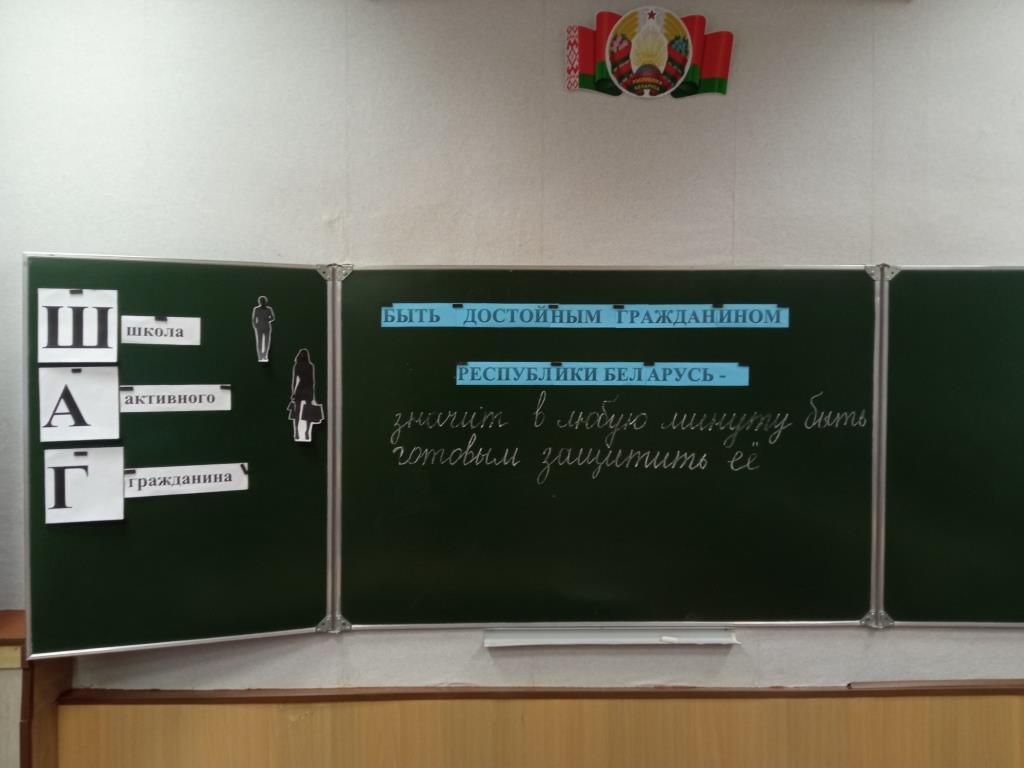 РЕСПУБЛІКА
БЕЛАРУСЬ
Ш школа
А активного
Г гражданина
БЫТЬ ДОСТОЙНЫМ ГРАЖДАНИНОМ
РЕСПУБЛИКИ БЕЛАРУСЬ -
значит в любую минуту быть
готовым защитить её